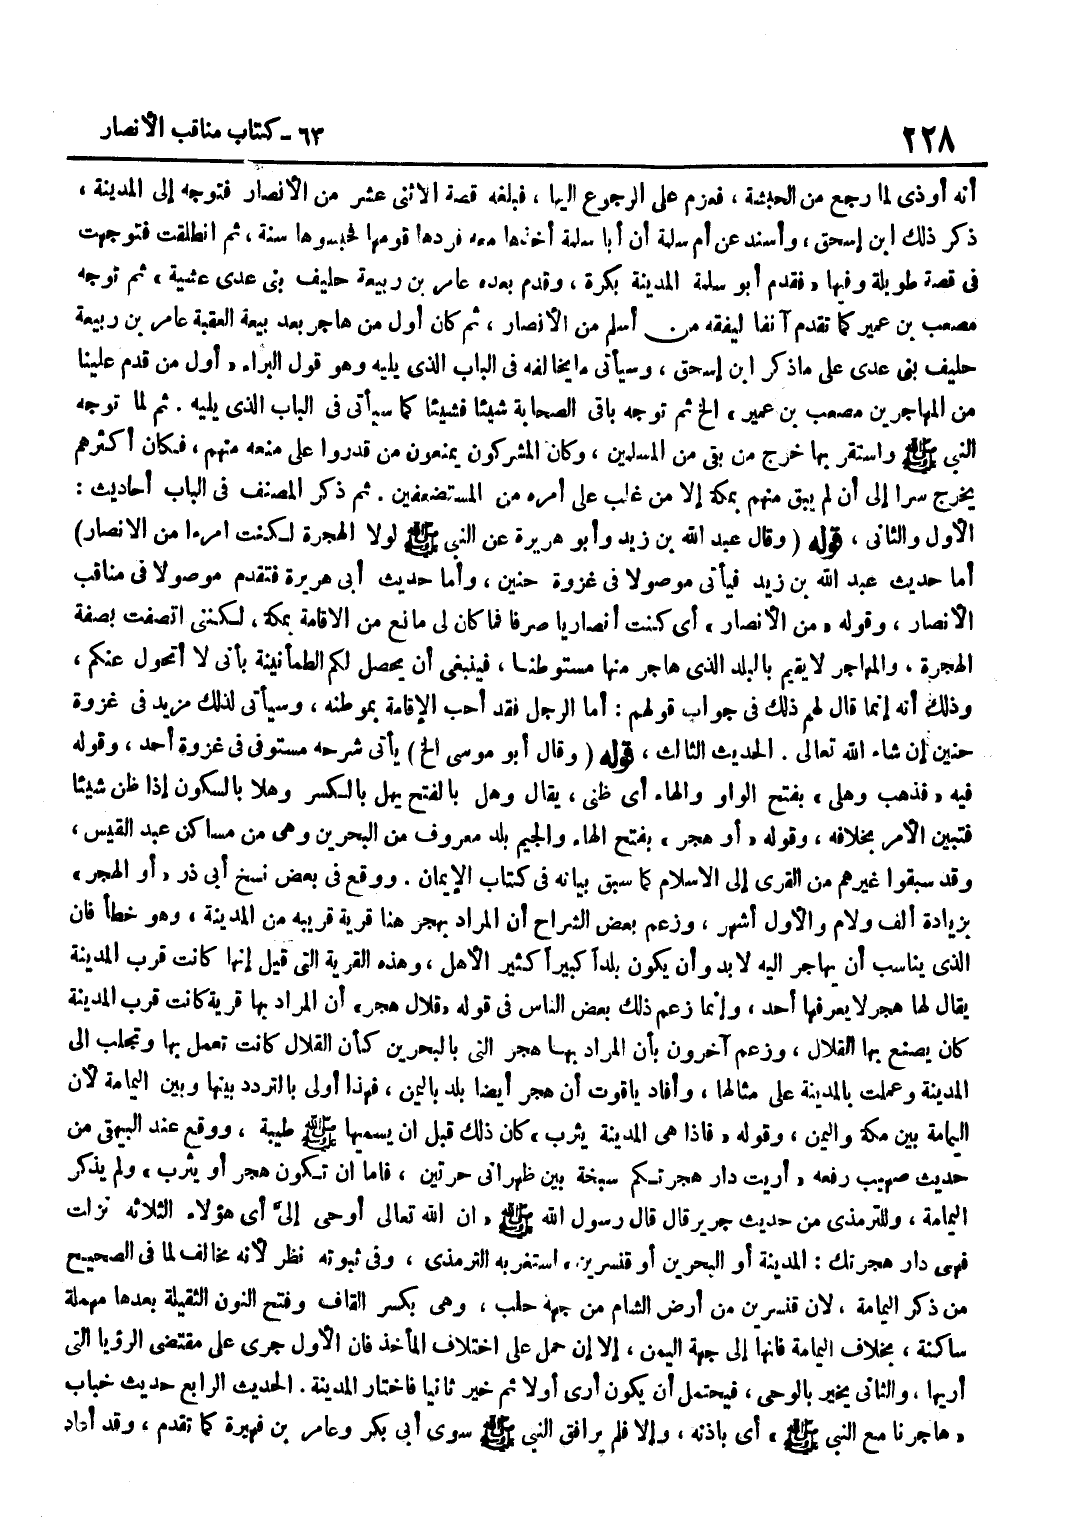 ٢٢٨
٦٣ - كتاب مناقب الأنصار
أنه أوذى لما رجع من الحبشة ، فعزم على الرجوع اليها ، فبلغه قصة الاثنى عشر من الأنصار فتوجه إلى المدينة ،
ذكر ذلك ابن إسحق ، وأسند عن أم سلمة أن أبا سلمة أخذها معه فردها قومها فحبسوها سنة ، ثم انطلقت فتوجهت
فى قصة طويلة وفيها « فقدم أبو سلمة المدينة بكرة ، وقدم بعده عامر بن ربيعة حليف بنى عدى عشية » ثم توجه
مصعب بن عمير كما تقدم آنفا ليفقه من أسلم من الأنصار ، ثم كان أول من هاجر بعد بيعة العقبة عامر بن ربيعة
حليف بنى عدى على ماذكر ابن إسحق ، وسيأتى مايخالفه فى الباب الذى يليه وهو قول البراء « أول من قدم علينا
من المهاجرين مصعب بن عمير » الخ ثم توجه باقى الصحابة شيئا فشيئا كما سيأتى فى الباب الذى يليه . ثم لما توجه
النبى ﷺ واستقر بها خرج من بقى من المسلمين ، وكان المشركون يمنعون من قدروا على منعه منهم ، فكان أكثرهم
يخرج سرا إلى أن لم يبق منهم بمكة إلا من غلب على أمره من المستضعفين . ثم ذكر المصنف فى الباب أحاديث :
الأول والثانى ، قوله ( وقال عبد الله بن زيد وأبو هريرة عن النبى ﷺ لولا الهجرة لكنت امرءا من الانصار)
أما حديث عبد الله بن زيد فيأتى موصولا فى غزوة حنين ، وأما حديث أبى هريرة فتقدم موصولا فى مناقب
الأنصار ، وقوله « من الأنصار » أى كنت أنصاريا صرفا فما كان لى مانع من الاقامة بمكة ، لكننى اتصفت بصفة
الهجرة ، والمهاجر لا يقيم بالبلد الذى هاجر منها مستوطنا ، فينبغى أن يحصل لكم الطمأنينة بأنى لا أتحول عنكم ،
وذلك أنه إنما قال لهم ذلك فى جواب قولهم : أما الرجل فقد أحب الإقامة بموطنه ، وسيأتى لذلك مزيد فى غزوة
حنين إن شاء الله تعالى . الحديث الثالث ، قوله ( وقال أبو موسى الخ ) يأتى شرحه مستوفى فى غزوة أحد ، وقوله
فيه « فذهب وهلى » بفتح الواو والهاء أى ظنى ، يقال وهل بالفتح يهل بالكسر وهلا بالسكون إذا ظن شيئا
فتبين الأمر بخلافه ، وقوله « أو هجر » بفتح الهاء والجيم بلد معروف من البحرين وهى من مساكن عبد القيس ،
وقد سبقوا غيرهم من القرى إلى الاسلام كما سبق بيانه فى كتاب الإيمان . ووقع فى بعض نسخ أبى ذر « أو الهجر »
بزيادة ألف ولام والأول أشهر ، وزعم بعض الشراح أن المراد بهجر هنا قرية قريبه من المدينة ، وهو خطأ فان
الذى يناسب أن يهاجر اليه لابد وأن يكون بلداً كبيراً كثير الأهل ، وهذه القرية التى قيل إنها كانت قرب المدينة
يقال لها هجر لا يعرفها أحد ، وإنما زعم ذلك بعض الناس فى قوله «قلال هجر» أن المراد بها قرية كانت قرب المدينة
كان يصنع بها القلال ، وزعم آخرون بأن المراد بها هجر التى بالبحرين كأن القلال كانت تعمل بها وتجلب الى
المدينة وعملت بالمدينة على مثالها ، وأفاد ياقوت أن هجر أيضا بلد باليمن ، فهذا أولى بالتردد بينها وبين اليمامة لأن
اليمامة بين مكة واليمن ، وقوله « فاذا هى المدينة يثرب » كان ذلك قبل ان يسميها ﷺ طيبة ، ووقع عند البيهقى من
حديث صهيب رفعه « أريت دار هجرتكم سبخة بين ظهرانى حرتين ، فاما ان تكون هجر أو يثرب » ولم يذكر
اليمامة ، وللترمذى من حديث جرير قال قال رسول الله ﷺ « ان الله تعالى أوحى إلىّ أى هؤلاء الثلاثه نزلت
فهى دار هجرتك : المدينة أو البحرين أو قنسرين » استغربه الترمذى ، وفى ثبوته نظر لأنه مخالف لما فى الصحيح
من ذكر اليمامة ، لان قنسرين من أرض الشام من جهة حلب ، وهى بكسر القاف وفتح النون الثقيلة بعدها مهملة
ساكنة ، بخلاف اليمامة فانها إلى جهة اليمن ، إلا إن حمل على اختلاف المأخذ فان الأول جرى على مقتضى الرؤيا التى
أريها ، والثانى يخير بالوحى ، فيحتمل أن يكون أرى أولا ثم خير ثانيا فاختار المدينة . الحديث الرابع حديث خباب
« هاجرنا مع النبى ﷺ » أى باذنه ، وإلا فلم يرافق النبى ﷺ سوى أبى بكر وعامر بن فهيرة كما تقدم ، وقد أعاد